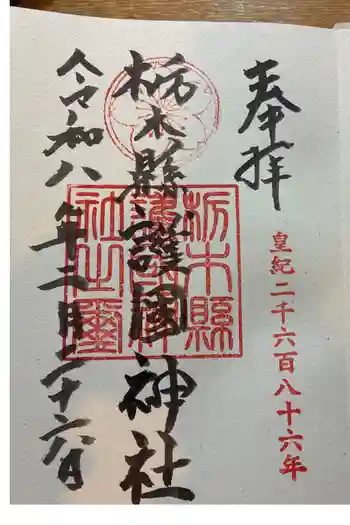 奉拝
皇紀二千六百八十六年
栃木縣護國神社
栃木縣護國神社之璽
令和八年二月二十六日